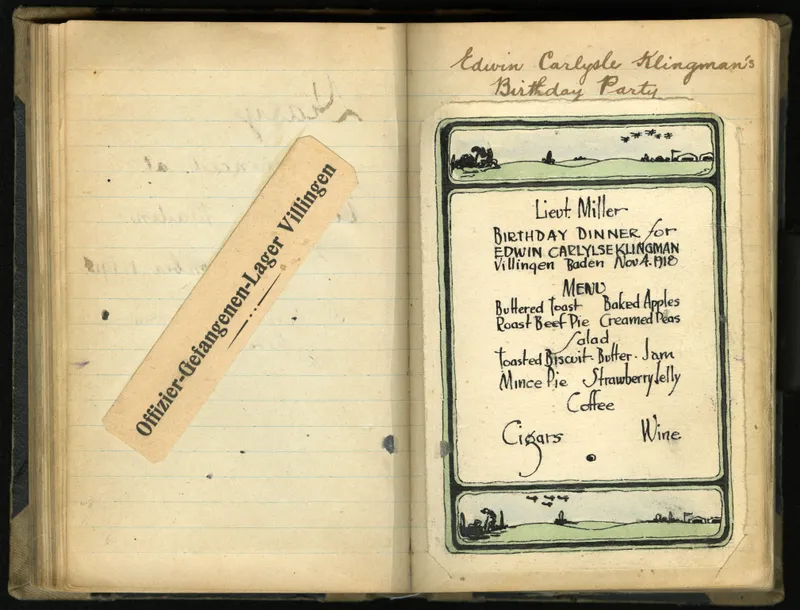 Offizier-Gefangenen-Lager Villingen
Edwin Carlysle Klingman's
Birthday Party
Lieut. Miller
BIRTHDAY DINNER for
EDWIN CARLYLSE KLINGMAN
Villingen Baden Nov 4. 1918
MENU
Buttered Toast Baked Apples
Roast Beef Pie Creamed Peas
Salad
Toasted Biscuit - Butter - Jam
Mince Pie Strawberry Jelly
Coffee
Cigars Wine